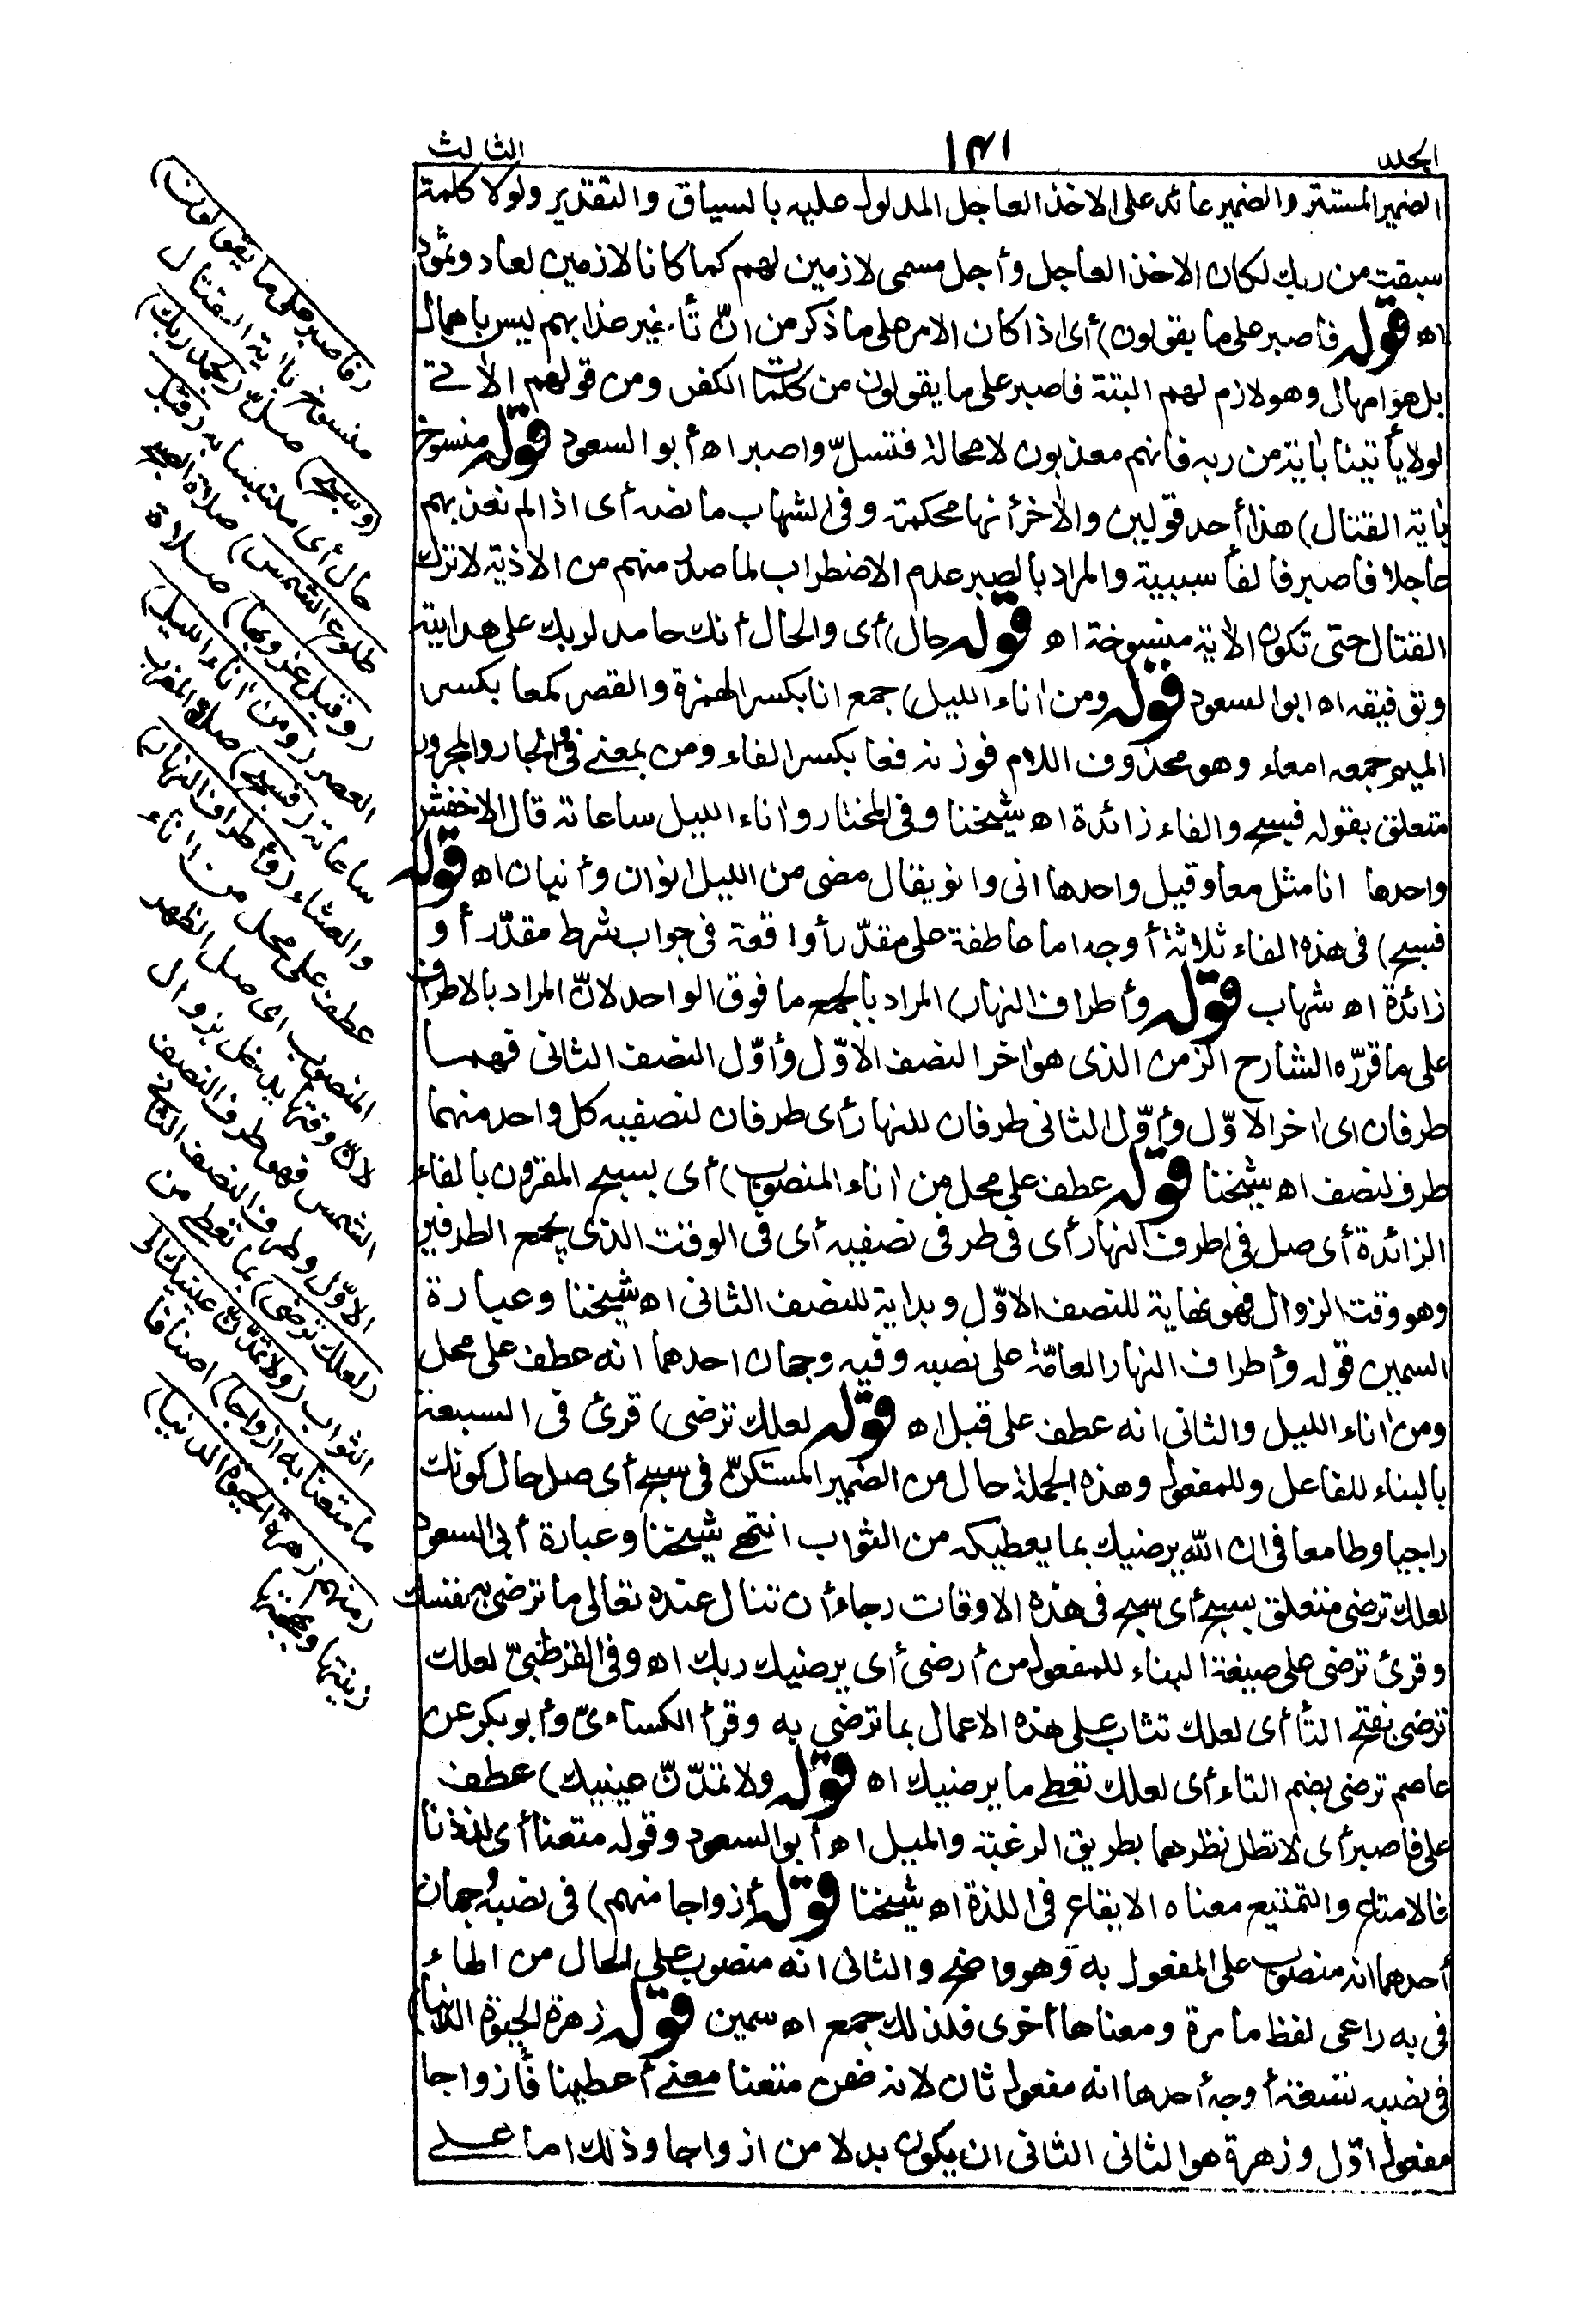 المجلد
١٣١
الثالث
الضمير المستتر والضمير عائد على الاخذ العاجل المدلول عليه بالسياق والتقدير ولولا كلمة
سبقت من ربك لكان الاخذ العاجل وأجل مسمى لازمين لهم كما كانا لازمين لعاد وثمود
اه قوله فاصبر على ما يقولون) أى اذا كان الامر على ما ذكر من انّ تأخير عذابهم ليس باهمال
بل هو امهال وهو لازم لهم البتة فاصبر على ما يقولون من كلمات الكفر ومن قولهم الآتى
لولا يأتينا بآية من ربه فانهم معذبون لا محالة فتسلّ واصبر اه أبو السعود قوله منسوخ
بآية القتال) هذا أحد قولين والآخر أنها محكمة وفى الشهاب ما نصه أى اذا لم نعذبهم
عاجلا فاصبر فالفأ سببية والمراد بالصبر عدم الاضطراب لما صدر منهم من الاذية لا ترك
القتال حتى تكون الآية منسوخة اه قوله حال) أى والحال أنك حامد لربك على هدايته
وتوفيقه اه ابو السعود قوله ومن آناء الليل) جمع انا بكسر الهمزة والقصر كمعا بكسر
الميم جمعه امعاء وهو محذوف اللام فوزنه فعا بكسر الفاء ومن بمعنى فى والجار والمجرور
متعلق بقوله فسبح والفاء زائدة اه شيخنا وفى المختار وآناء الليل ساعاته قال الاخفش
واحدها انا مثل معا وقيل واحدها انى وانو يقال مضى من الليل انوان وأنيان اه قوله
فسبح) فى هذه الفاء ثلاثة أوجه اما عاطفة على مقدّر أو واقعة فى جواب شرط مقدّر أو
زائدة اه شهاب قوله وأطراف النهار) المراد بالجمع ما فوق الواحد لانّ المراد بالاطراف
على ما قرّره الشارح الزمن الذى هو آخر النصف الاوّل وأوّل النصف الثانى فهما
طرفان اى آخر الاوّل وأوّل الثانى طرفان للنهار أى طرفان لنصفيه كل واحد منهما
طرف لنصف اه شيخنا قوله عطف على محل من آناء المنصوب) أى بسبح المقرون بالفاء
الزائدة أى صل فى اطراف النهار أى فى طرفى نصفيه أى فى الوقت الذى يجمع الطرفين
وهو وقت الزوال فهو نهاية للنصف الاوّل وبداية للنصف الثانى اه شيخنا وعبارة
السمين قوله وأطراف النهار العامّة على نصبه وفيه وجهان احدهما انه عطف على محل
ومن آناء الليل والثانى انه عطف على قبل اه قوله لعلك ترضى) قرئ فى السبعة
بالبناء للفاعل وللمفعول وهذه الجملة حال من الضمير المستكنّ فى سبح أى صل حال كونك
راجيا وطامعا فى ان الله يرضيك بما يعطيكه من الثواب انتهى شيخنا وعبارة أبى السعود
لعلك ترضى متعلق بسبح أى سبح فى هذه الاوقات رجاء أن تنال عنده تعالى ما ترضى به نفسك
وقرئ ترضى على صيغة البناء للمفعول من أرضى أى يرضيك ربك اه وفى القرطبىّ لعلك
ترضى بفتح التأ أى لعلك تثاب على هذه الاعمال بما ترضى به وقرأ الكساءىّ وأبو بكر عن
عاصم ترضى بضم التاء أى لعلك تعطى ما يرضيك اه قوله ولا تمدّنّ عينيك) عطف
على فاصبر أى لا تطل نظرهما بطريق الرغبة والميل اه أبو السعود وقوله متعنا أى لذذنا
فالامتاع والتمتيع معناه الايقاع فى اللذة اه شيخنا قوله أزواجا منهم) فى نصبه وجهان
أحدهما انه منصوب على المفعول به وهو واضح والثانى انه منصوب على الحال من الهاء
فى به راعى لفظ ما مرة ومعناها أخرى فلذلك جمع اه سمين قوله زهرة الحيوة الدنيا)
فى نصبه تسعة أوجه أحدها انه مفعول ثان لانه ضمن متعنا معنى أعطينا فأزواجا
مفعول اوّل وزهرة هو الثانى الثانى ان يكون بدلا من ازواجا وذلك اما على
(فاصبر على ما يقولون)
منسوخ بآية القتال
(وسبح) صلّ (بحمد ربك)
حال أى ملتبسا به (قبل
طلوع الشمس) صلاة الصبح
(وقبل غروبها) صلاة
العصر (ومن آناء الليل)
ساعاته (فسبح) صل المغرب
والعشاء (وأطراف النهار)
عطف على محل من آناء
المنصوب اى صل الظهر
لانّ وقتها يدخل بزوال
الشمس فهو طرف النصف
الاوّل وطرف النصف الثانى
(لعلك ترضى) بما تعطى من
الثواب (ولا تمدّنّ عينيك الى
ما متعنا به ازواجا) اصنافا
(منهم زهرة الحيوة الدنيا)
زينتها وبهجتها